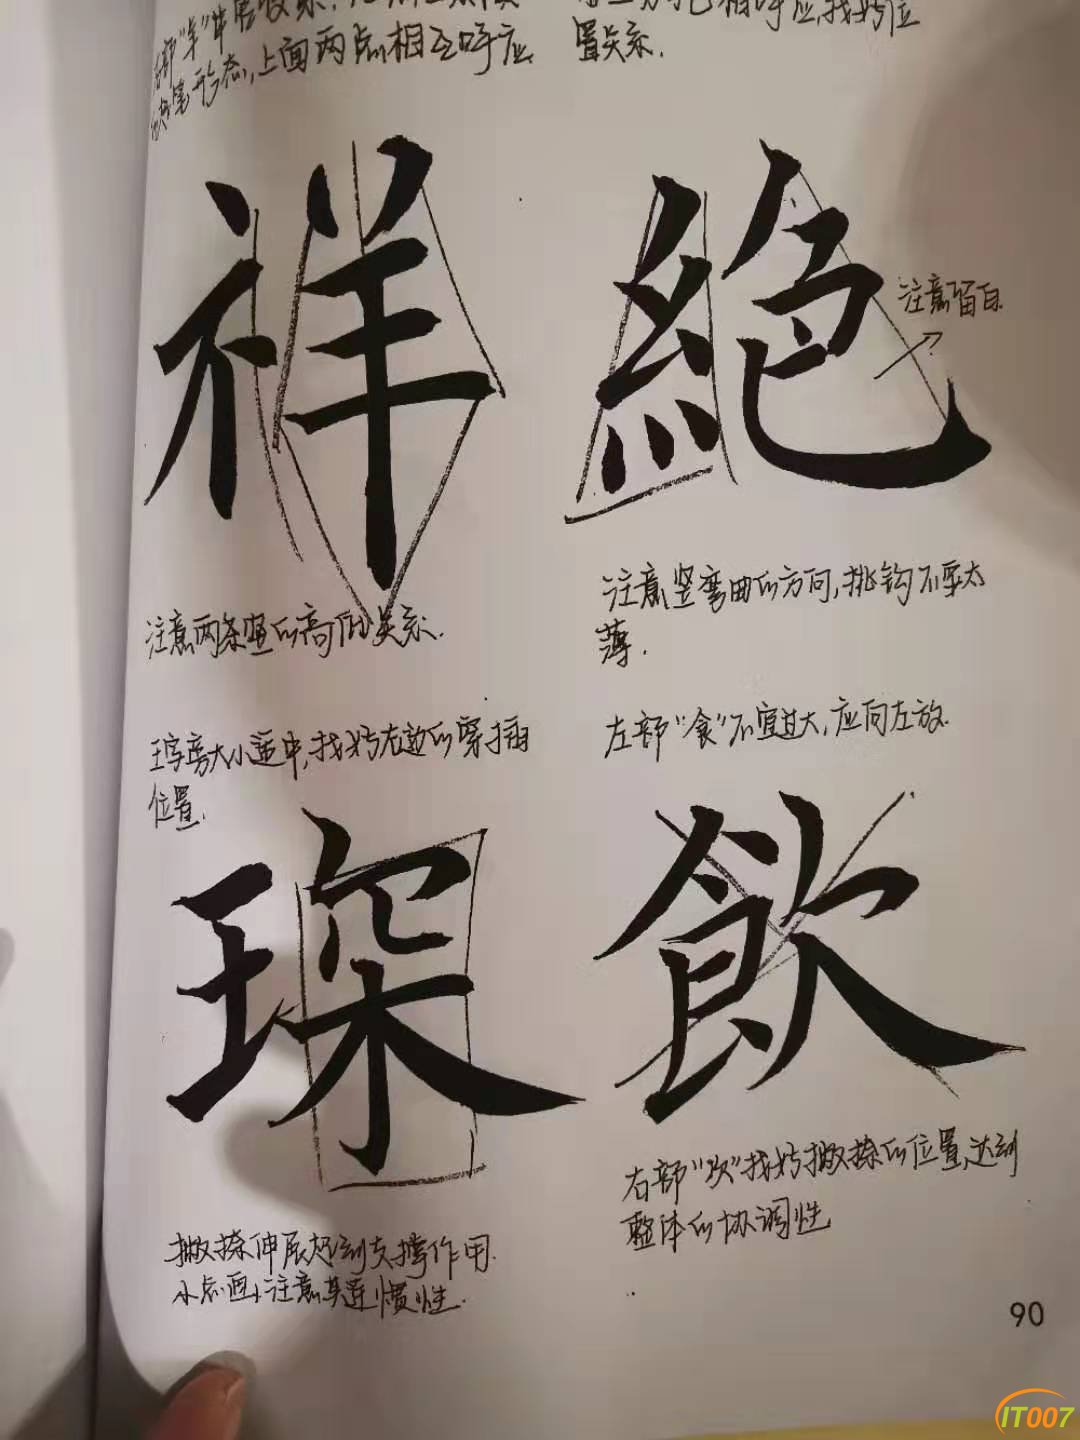 形态,上面两点相互呼应
相呼应,找好位
置关系.
祥
絕
注意留白
注意两条竖的高低关系.
注意竖弯曲的方向,挑钩不要太
薄.
王字旁大小适中,找好右边的穿插
位置.
左部“食”不宜过大,应向左放.
琛
飲
撇捺伸展起到支撑作用.
小点画,注意其连惯性.
右部“欠”找好撇捺的位置,达到
整体的协调性
90
IT007